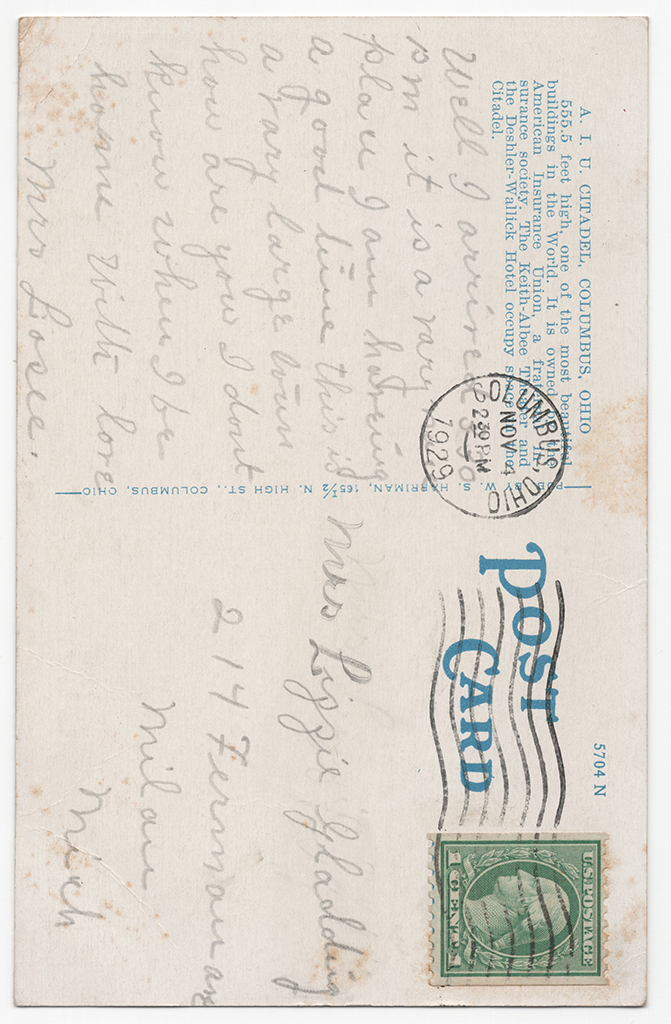 A. I. U. CITADEL, COLUMBUS, OHIO
555.5 feet high, one of the most beautiful
buildings in the World. It is owned by the
American Insurance Union, a fraternal in-
surance society. The Keith-Albee Theater and
the Deshler-Wallick Hotel occupy space in the
Citadel.
Well I arrived
pm it is a vary
place I am having
a good time this is
a vary large town
how are you I dont
know when I be
home With love
Mrs Losee.
PUB. BY W. S. HARRIMAN, 165½ N. HIGH ST., COLUMBUS, OHIO
COLUMBUS, OHIO
NOV 4
2 30 PM
1929
POST
CARD
5704 N
U.S. POSTAGE
1 CENT 1
Mrs Lizzie Gladding
214 Ferman av
Milan
Mich